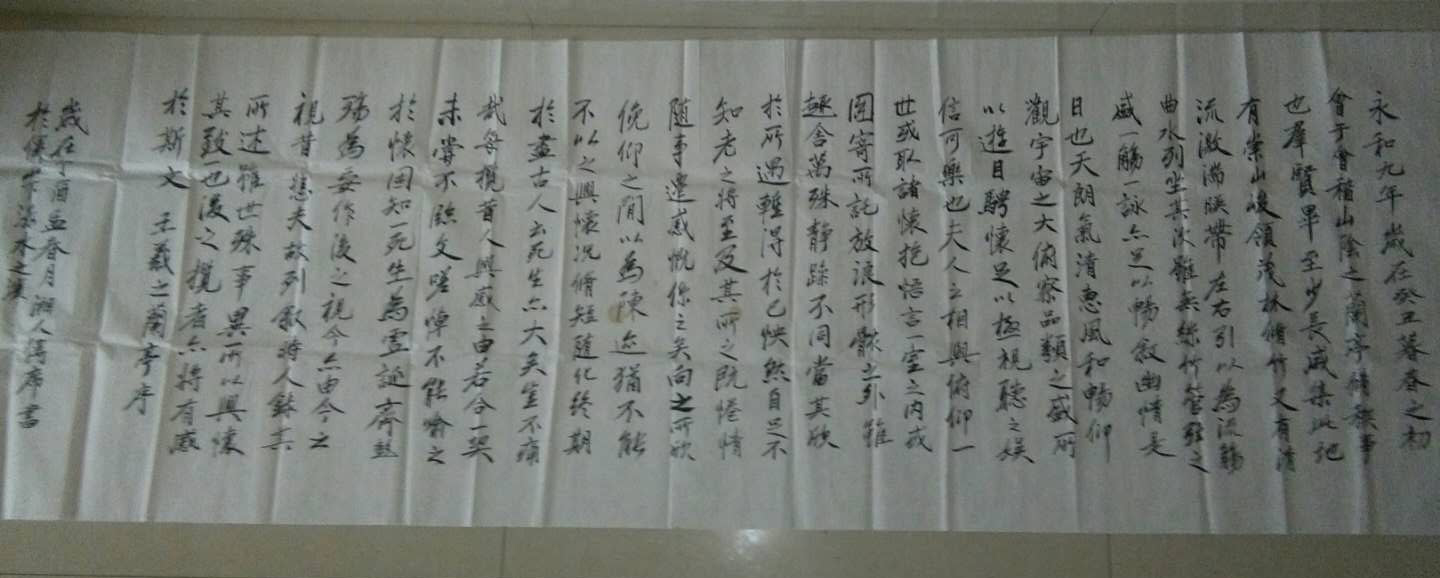 永和九年歲在癸丑暮春之初
會于會稽山陰之蘭亭脩禊事
也羣賢畢至少長咸集此地
有崇山峻領茂林脩竹又有清
流激湍暎帶左右引以為流觴
曲水列坐其次雖無絲竹管弦之
盛一觴一詠亦足以暢敘幽情是
日也天朗氣清惠風和暢仰
觀宇宙之大俯察品類之盛所
以遊目騁懷足以極視聽之娛
信可樂也夫人之相與俯仰一
世或取諸懷抱悟言一室之內或
因寄所託放浪形骸之外雖
趣舍萬殊靜躁不同當其欣
於所遇暫得於己怏然自足不
知老之將至及其所之既惓情
隨事遷感慨係之矣向之所欣
俛仰之間以為陳迹猶不能
不以之興懷況脩短隨化終期
於盡古人云死生亦大矣豈不痛
哉每攬昔人興感之由若合一契
未嘗不臨文嗟悼不能喻之
於懷固知一死生為虛誕齊彭
殤為妄作後之視今亦由今之
視昔悲夫故列敘時人錄其
所述雖世殊事異所以興懷
其致一也後之攬者亦將有感
於斯文 王羲之蘭亭序
歲在丁酉孟春月湘人席書
於水之濱